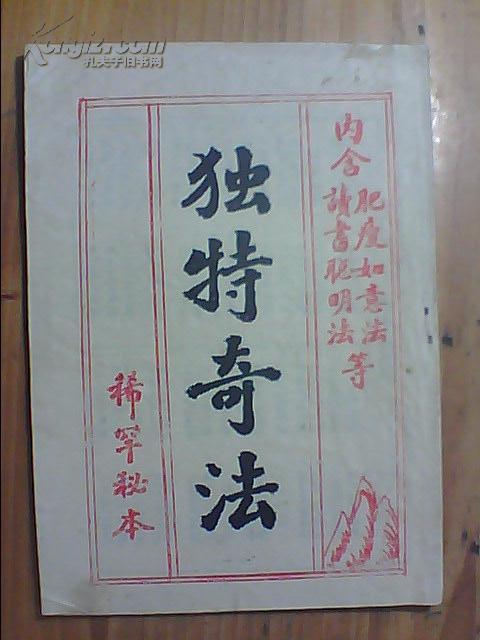 孔夫子旧书网
内含
肥瘦如意法
讀書聪明法
等
独特奇法
稀罕秘本